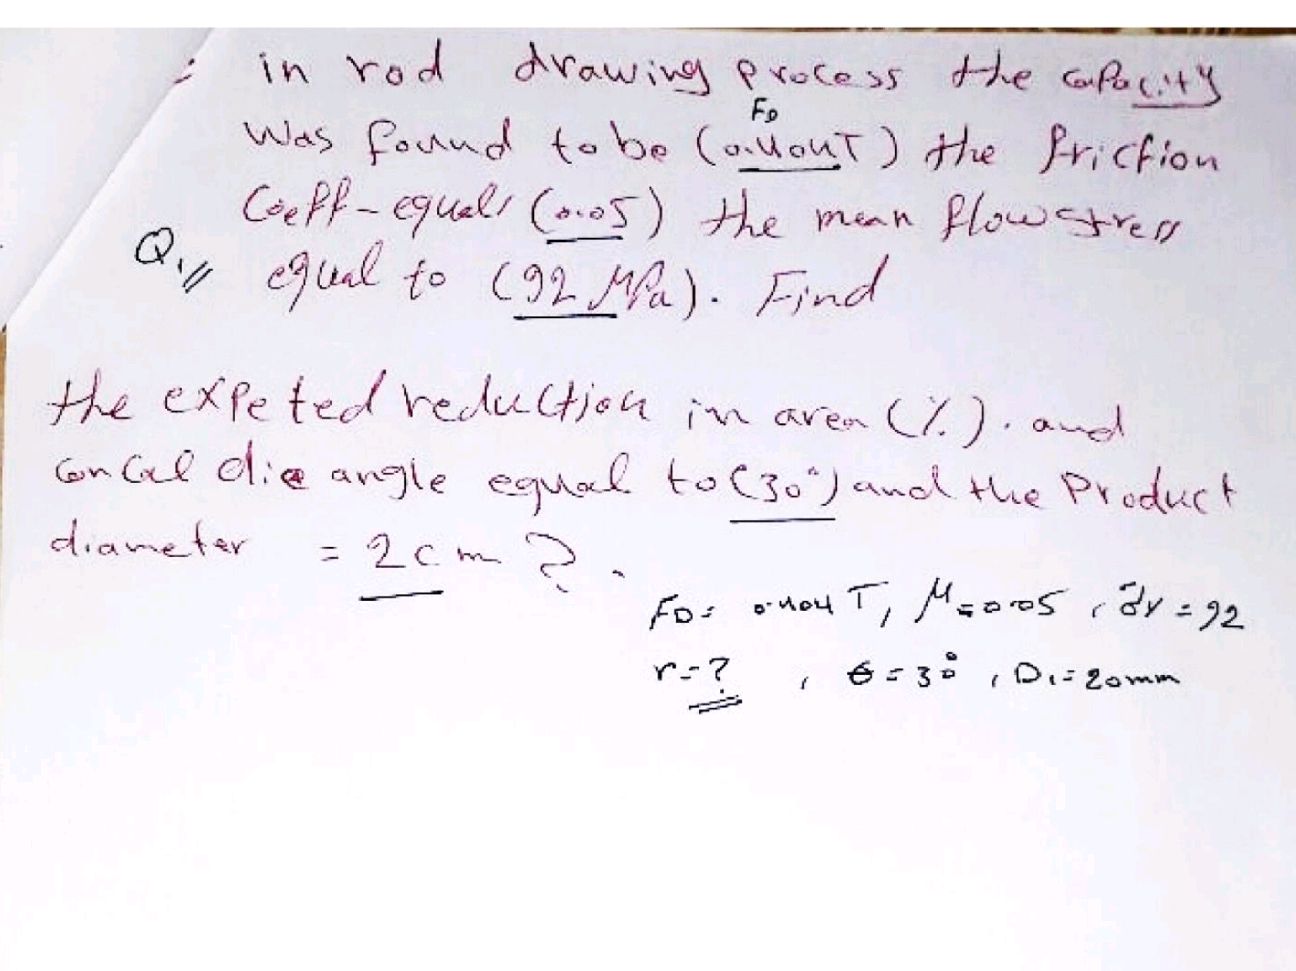 in rod drawing process the capacity
FD
was found to be (0.404T) the friction
Coeff-equals (0.05) the mean flow stress
Q1// equal to (92 MPa). Find
the expeted reduction in area (%). and
conical die angle equal to (30°) and the Product
diameter = 2cm?.
FD= 0.404 T, M=0.05, σ̄y=92
r=?, θ=30°, D1=20mm